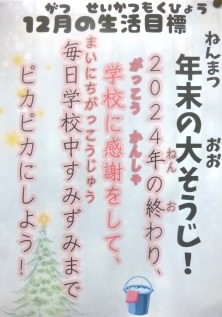 がつ せいかつもくひょう
12月の生活目標
ねんまつ おお
年末の大そうじ！
ねん お
2024年の終わり、
がっこう かんしゃ
学校に感謝をして、
まいにちがっこうじゅう
毎日学校中すみずみまで
ピカピカにしよう！